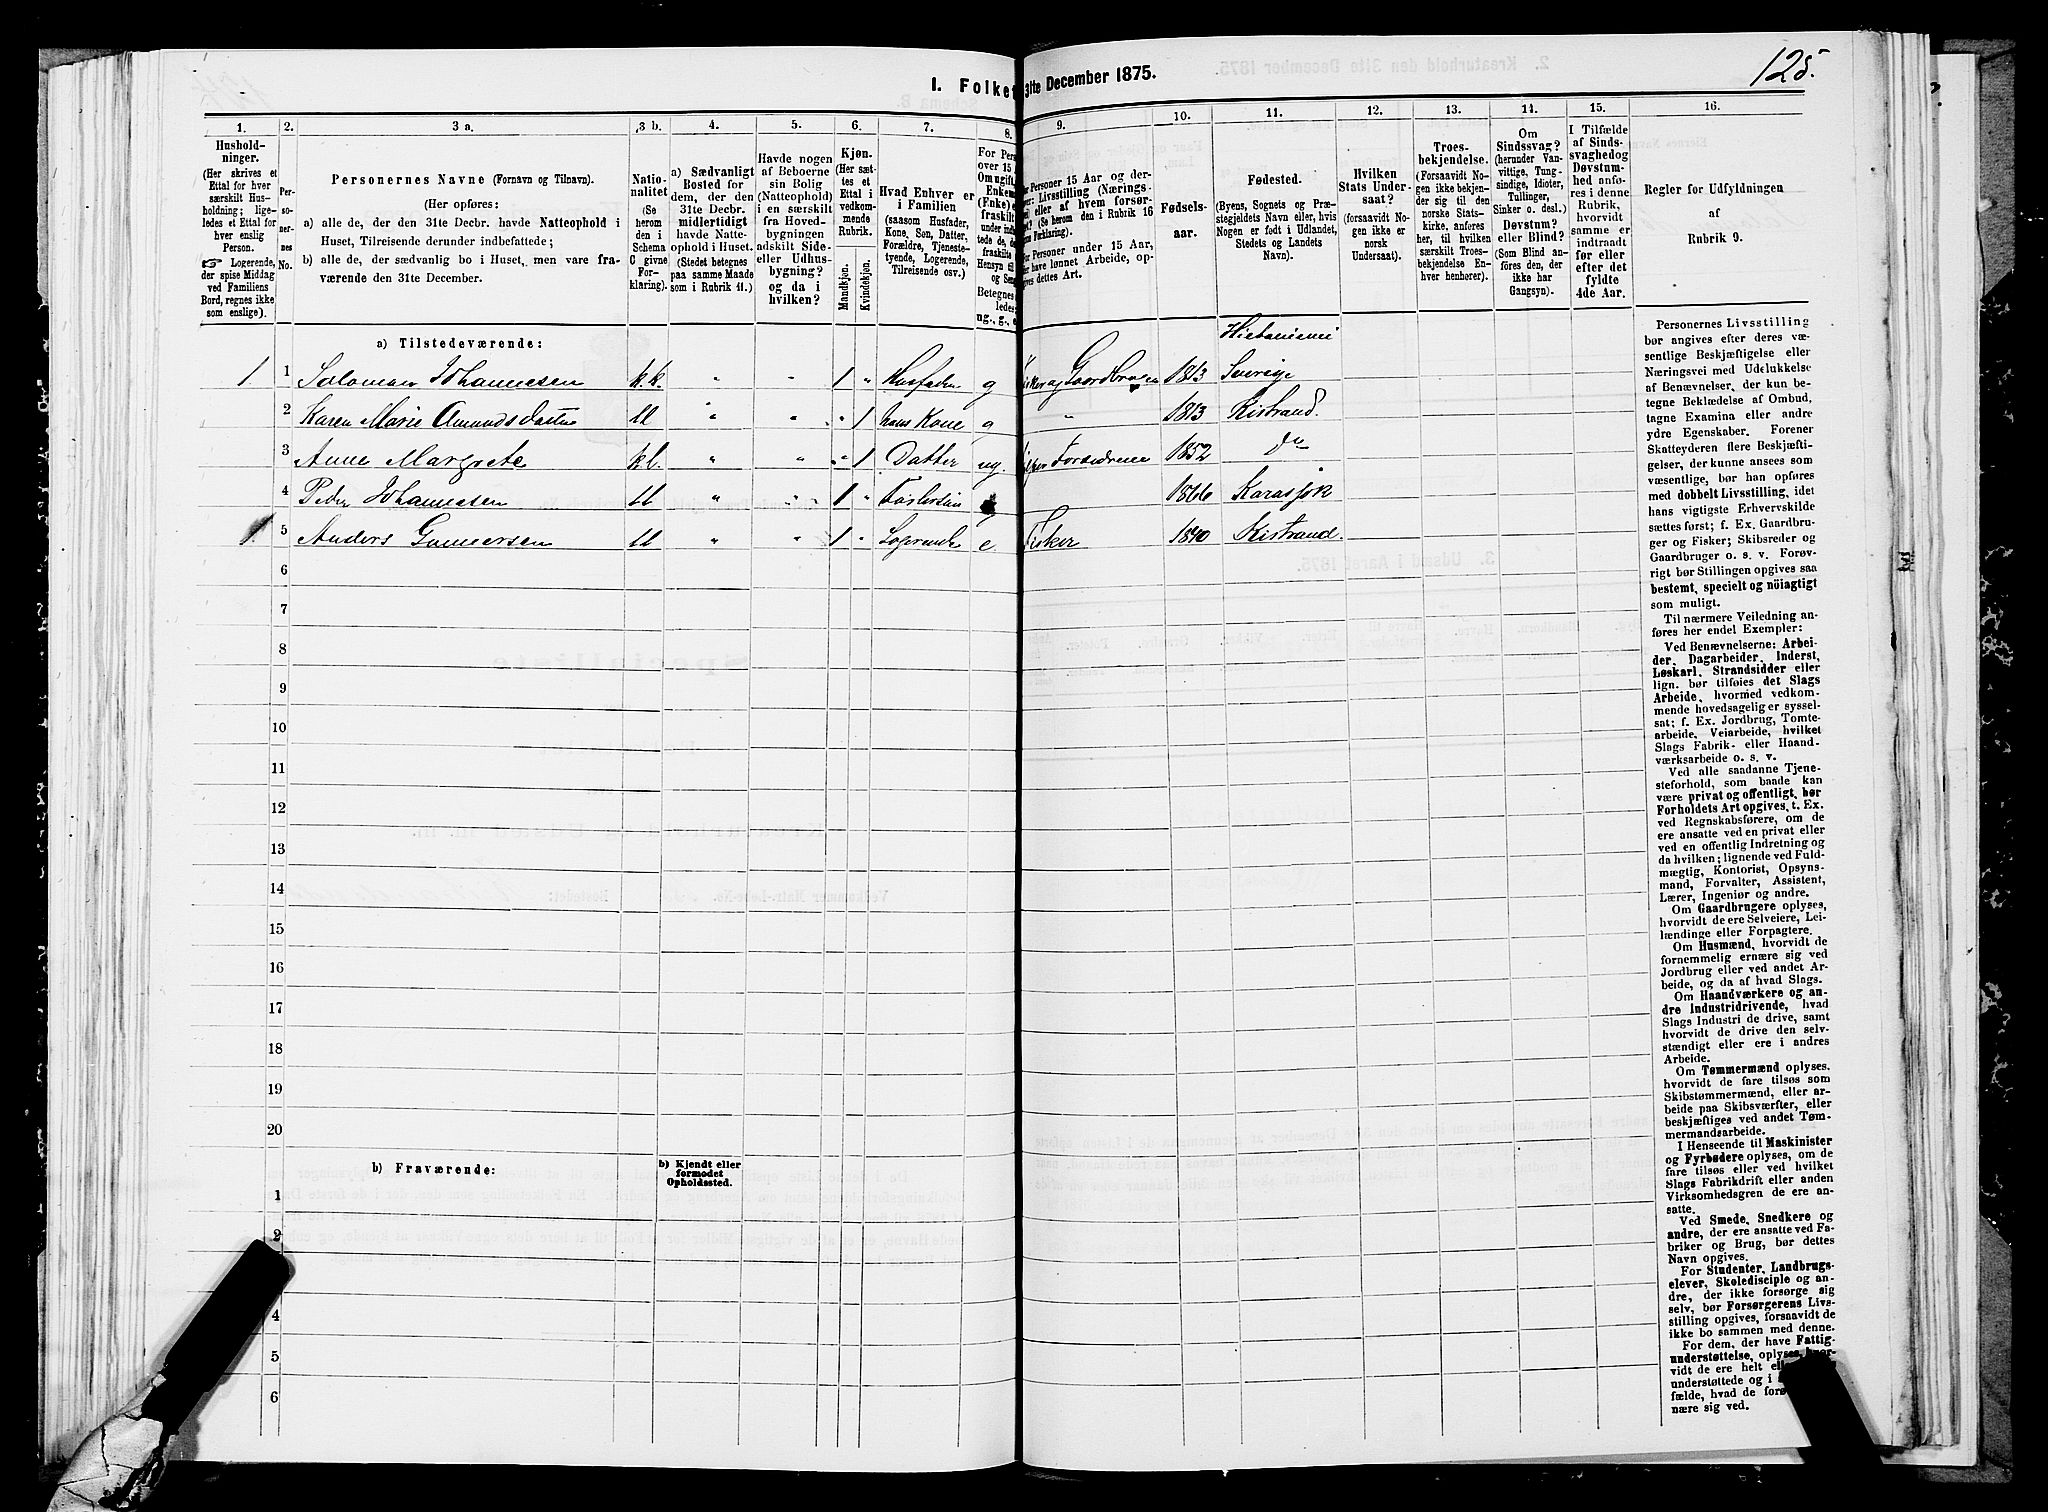 125.
I. Folket
31te December 1875.
1.
2.
3 a.
3 b.
4.
5.
6.
7.
8.
9.
10.
11.
12.
13.
14.
15.
16.
Hushold-
ninger.
(Her skrives et
Ettal for hver
særskilt Hus-
holdning; lige-
ledes et Ettal for
hver enslig
Person.
☞ Logerende,
der spise Middag
ved Familiens
Bord, regnes ikke
som enslige).
Per-
so-
ner-
nes
No.
Personernes Navne (Fornavn og Tilnavn).
(Her opføres:
a) alle de, der den 31te Decbr. havde Natteophold i
Huset, Tilreisende derunder indbefattede;
b) alle de, der sædvanlig bo i Huset, men vare fra-
værende den 31te December.
Natio-
nalitet
(Se
herom
den i
Schema
C givne
For-
klaring).
a) Sædvanligt
Bosted for
dem, der den
31te Decbr.
midlertidigt
havde Natte-
ophold i Huset.
(Stedet betegnes
paa samme Maade
som i Rubrik 11.)
Havde nogen
af Beboerne
sin Bolig
(Natteophold)
i en særskilt
fra Hoved-
bygningen
adskilt Side-
eller Udhus-
bygning?
og da i
hvilken?
Kjøn.
(Her sæt-
tes et
Ettal i
vedkom-
mende
Rubrik.
Mandkjøn.
Kvindekjøn.
Hvad Enhver er
i Familien
(saasom Husfader,
Kone, Søn, Datter,
Forældre, Tjeneste-
tyende, Logerende,
Tilreisende osv.)
Fødsels-
aar.
Fødested.
(Byens, Sognets og Præ-
stegjeldets Navn eller, hvis
Nogen er født i Udlandet,
Stedets og Landets
Navn).
Hvilken
Stats Under-
saat?
(forsaavidt No-
gen ikke er
norsk
Undersaat).
Troes-
bekjendelse.
(Forsaavidt No-
gen ikke bekjen-
der sig til den
norske Stats-
kirke, anføres
her, til hvilken
særskilt Troes-
bekjendelse En-
hver henhører).
Om
Sindssvag?
(herunder Van-
vittige, Tung-
sindige, Idioter,
Tullinger,
Sinker o. desl.)
Døvstum?
eller Blind?
(Som Blind an-
føres den, der
ikke har
Gangsyn).
I Tilfælde
af Sinds-
svaghed og
Døvstum-
hed anfø-
res i denne
Rubrik,
hvorvidt
samme er
indtraadt
før eller
efter det
fyldte
4de Aar.
Regler for Udfyldningen
af
Rubrik 9.
a) Tilstedeværende:
Hietaniemi
1. 1 Salomon Johannesen k.k. " " 1 " Husfader g Gaardbruger 1813 Sverige
2 Karen Marie Amundsdatter ll " " " 1 hans Kone g " 1813 Kistrand.
3 Anne Margrete k.l. " " " 1 Datter ug. Forældrene 1852 do
4 Peder Johannesen ll " " 1 " Fostersøn 1866 Karasjok
1. 5 Anders Gunnersen ll " " 1 " Logerende e Fisker 1840 Kistrand.
6
7
8
9
10
11
12
13
14
15
16
17
18
19
20
b) Fraværende:
b) Kjendt eller
formodet
Opholdssted.
1
2
4
5
6
Personernes Livsstilling
bør angives efter deres væ-
sentlige Beskjæftigelse eller
Næringsvei med Udelukkelse
af Benævnelser, der kun be-
tegne Beklædelse af Ombud,
tagne Examina eller andre
ydre Egenskaber. Forener
Skatteyderen flere Beskjæfti-
gelser, der kunne ansees som
væsentlige, bør han opføres
med dobbelt Livsstilling, idet
hans vigtigste Erhvervskilde
sættes først; f. Ex. Gaardbru-
ger og Fisker; Skibsreder og
Gaardbruger o. s. v. Forøv-
rigt bør Stillingen opgives saa
bestemt, specielt og nöiagtigt
som muligt.
Til nærmere Veiledning an-
føres her endel Exempler:
Ved Benævnelserne: Arbei-
der, Dagarbeider, Inderst,
Løskarl, Strandsidder eller
lign. bør tilføies det Slags
Arbeide, hvormed vedkom-
mende hovedsagelig er syssel-
sat; f. Ex. Jordbrug, Tomte-
arbeide, Veiarbeide, hvilket
Slags Fabrik- eller Haand-
værksarbeide o. s. v.
Ved alle saadanne Tjene-
steforhold, som baade kan
være privat og offentligt, bør
Forholdets Art opgives, t. Ex.
ved Regnskabsførere, om de
ere ansatte ved en privat eller
ved en offentlig Indretning og
da hvilken; lignende ved Fuld-
mægtig, Kontorist, Opsyns-
mand, Forvalter, Assistent,
Lærer, Ingeniør og andre.
Om Gaardbrugere oplyses,
hvorvidt de ere Selveiere, Lei-
lændinge eller Forpagtere.
Om Husmænd, hvorvidt de
fornemmelig ernære sig ved
Jordbrug eller ved andet Ar-
beide, og da af hvad Slags.
Om Haandværkere og an-
dre Industridrivende, hvad
Slags Industri de drive, samt
hvorvidt de drive den selv-
stændigt eller ere i andres
Arbeide.
Om Tømmermænd oplyses,
hvorvidt de fare tilsøs som
Skibstømmermænd, eller ar-
beide paa Skibsværfter, eller
beskjæftiges ved andet Tøm-
mermandsarbeide.
I Henseende til Maskinister
og Fyrbødere oplyses, om de
fare tilsøs eller ved hvilket
Slags Fabrikdrift eller anden
Virksomhedsgren de ere an-
satte.
Ved Smede, Snedkere og
andre, der ere ansatte ved Fa-
briker og Brug, bør dettes
Navn opgives.
For Studenter, Landbrugs-
elever, Skoledisciple og an-
dre, der ikke forsørge sig
selv, bør Forsørgerens Livs-
stilling opgives, forsaavidt de
ikke bo sammen med denne.
For dem, der have Fattig-
understøttelse, oplyses, hvor-
vidt de ere helt
understøttede og i
fælde, hvad de
nære sig ved.